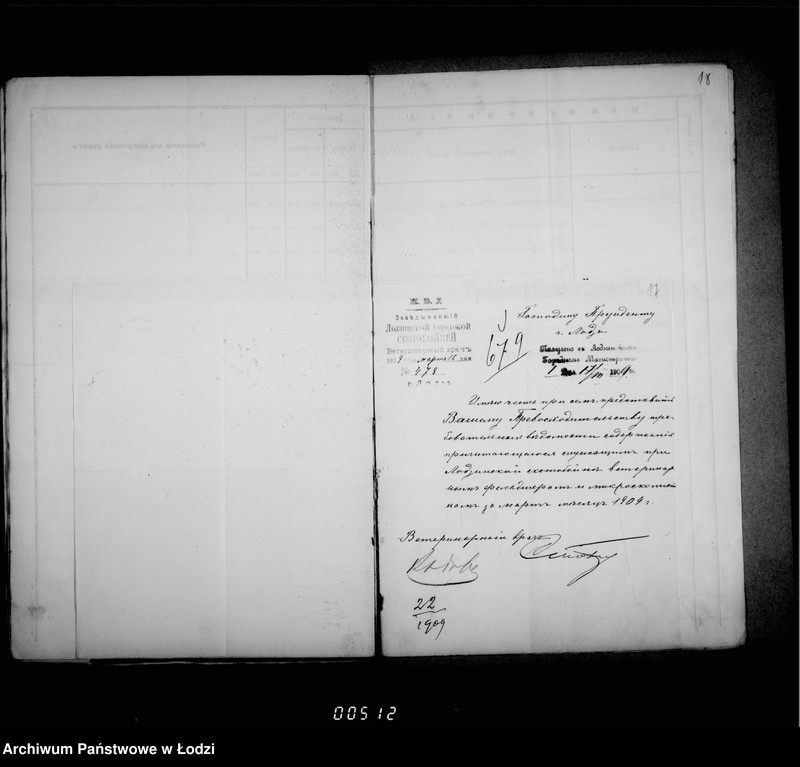 18
17
М. В. Д.
Завѣдывающій
Лодзинской городской
СКОТОБОЙНЕЙ
Ветеринарный врачъ
1909 марта 16 дня
№ 278
г. Лодзь
679
Господину Президенту
г. Лодзи
Получено въ Лодзинскомъ
Городскомъ Магистратѣ
17/III 1909
Имѣю честь при семъ представить
Вашему Превосходительству тре-
бовательныя вѣдомости содержанія
причитающагося служащимъ при
Лодзинской скотобойнѣ ветеринар
нымъ фельдшерамъ и микроскопист
камъ за мартъ мѣсяцъ 1909 г.
Ветеринарный врачъ
22
1909
00512
Archiwum Państwowe w Łodzi